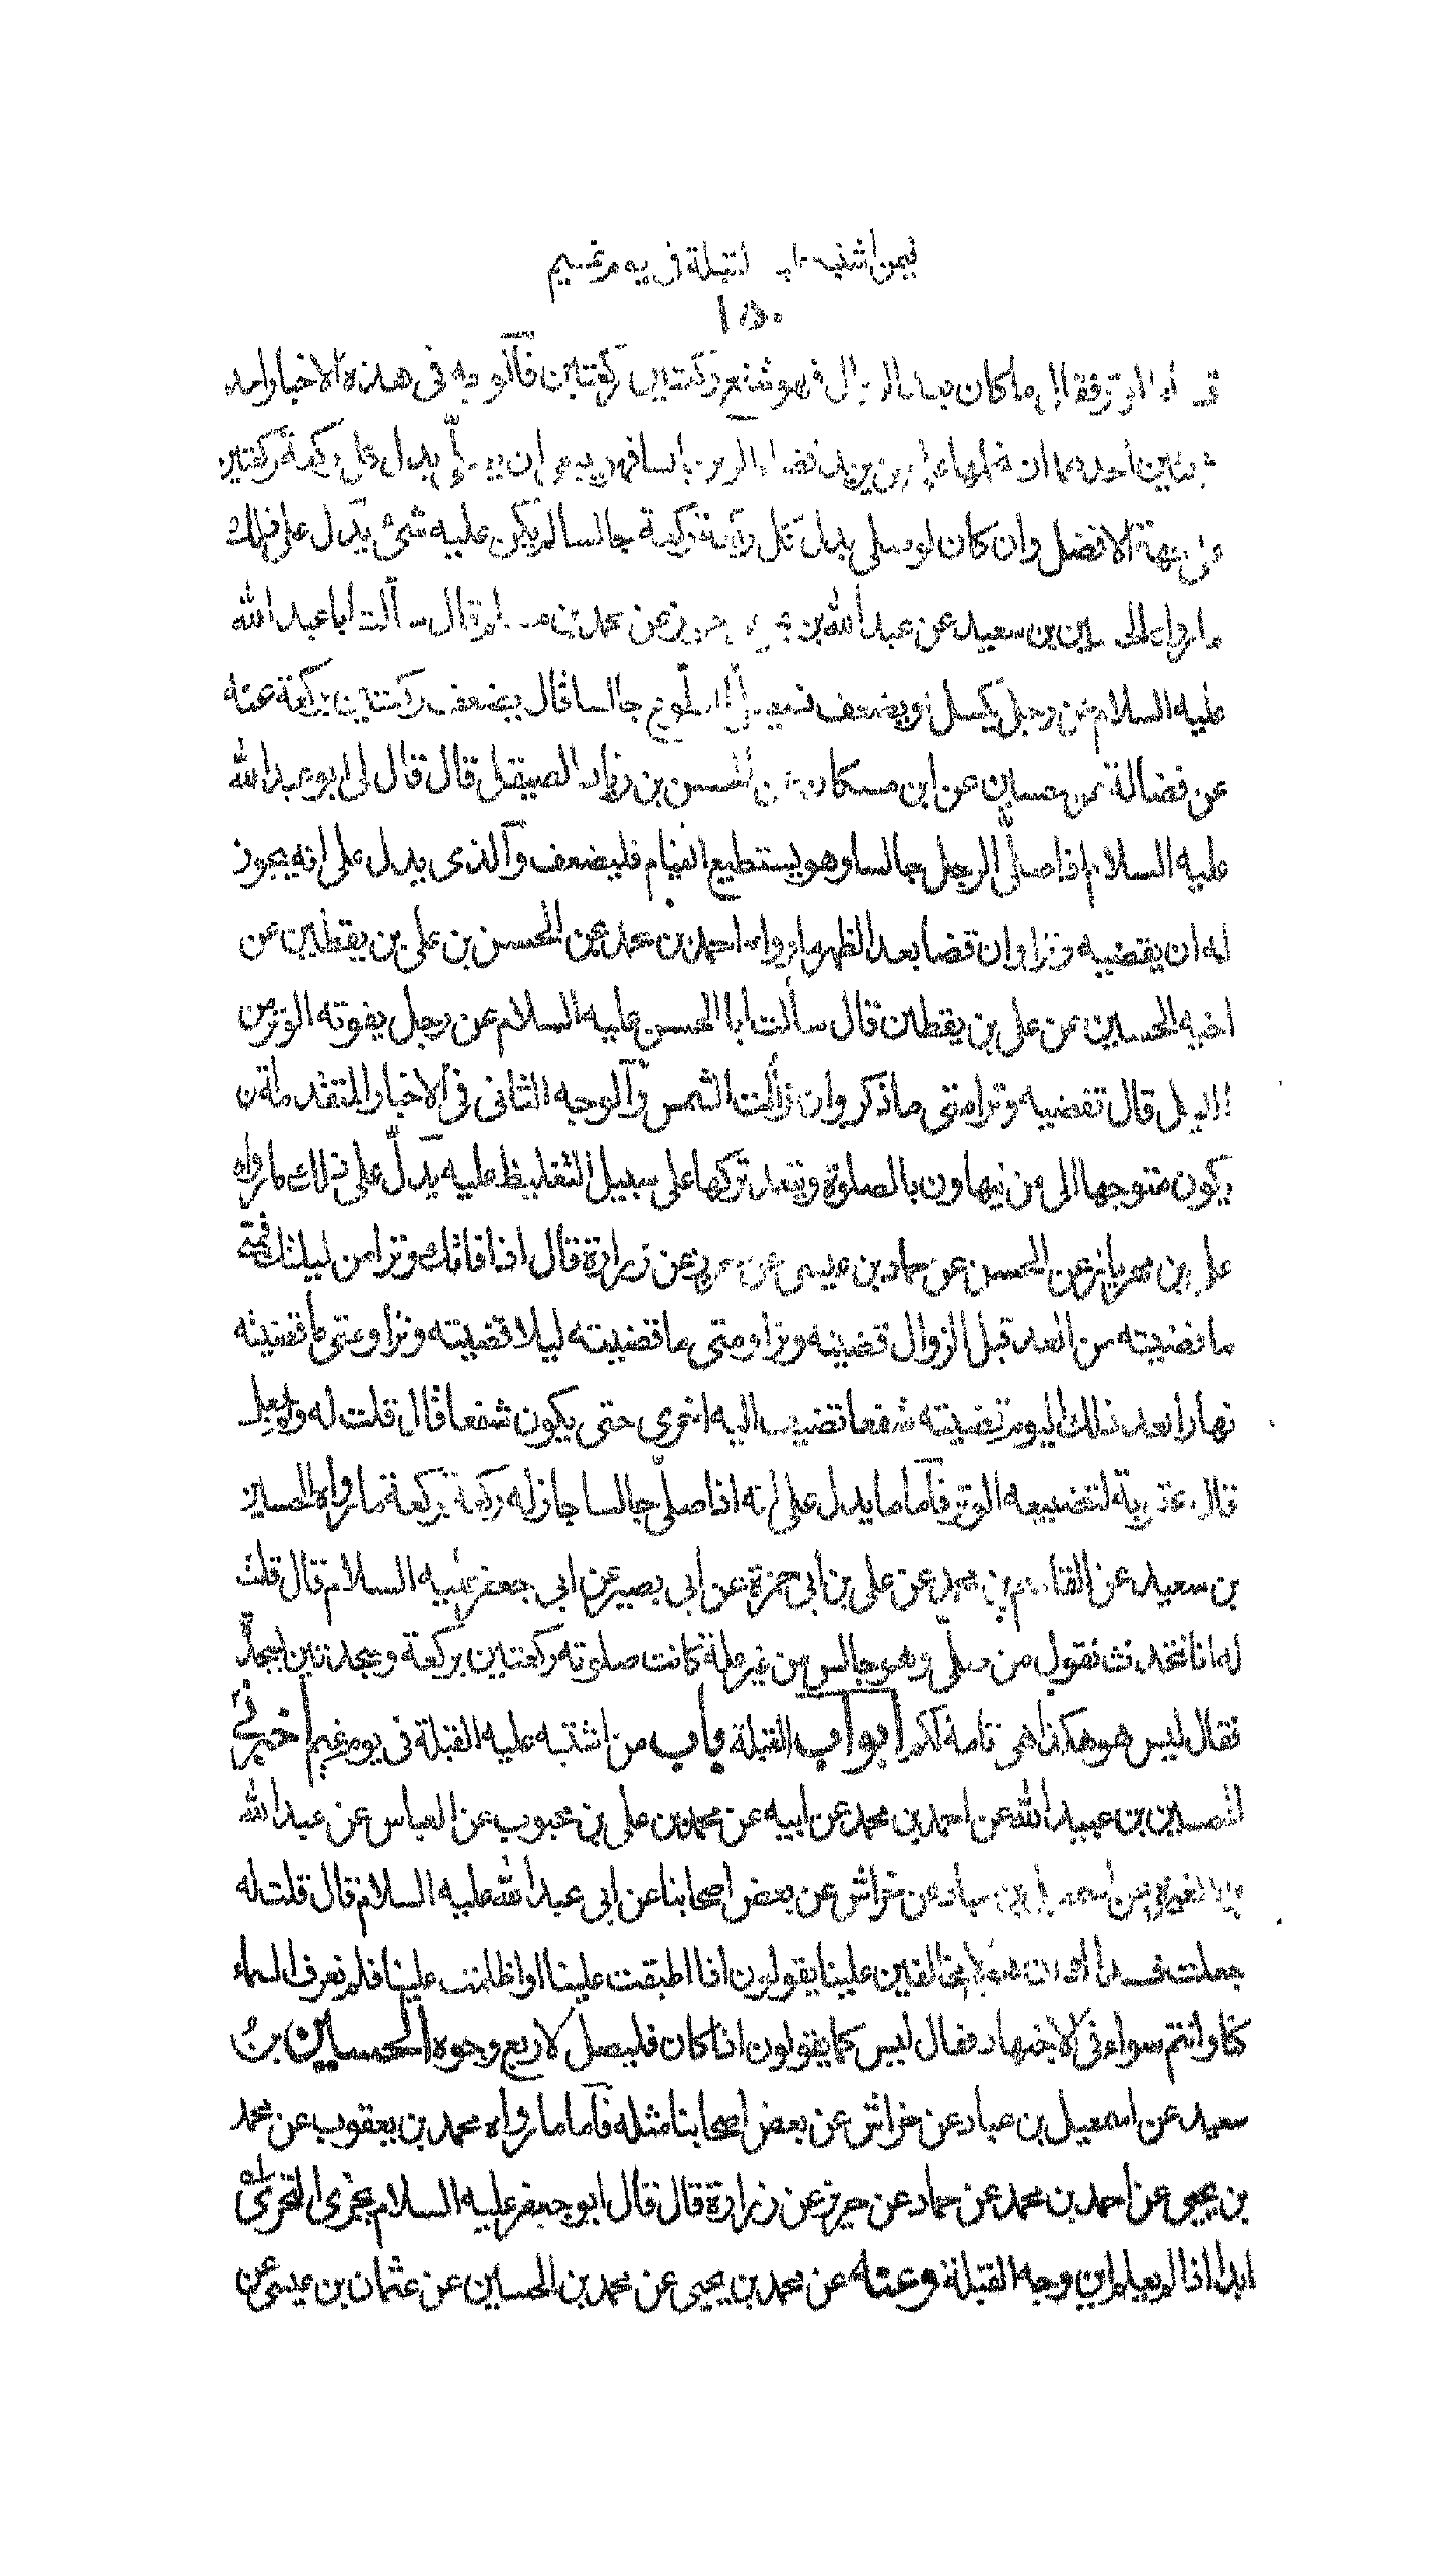 فيمن اشتبه القبلة في يوم غيم
١٥٠
ما كان بعد الزوال فهو شفع ركعتين ركعتين فالوجه في هذه الاخبار احد
شيئين احدهما ان من ان يصلي بدل كل ركعة ركعتين
على جهة الافضل وان كان لو صلى بدل كل ركعة ركعة جالسا لم يكن عليه شئ يدل على ذلك
ما رواه الحسين بن سعيد عن عبد الله بن عن محمد بن مسلم قال سألت ابا عبد الله
عليه السلام عن رجل يكسل او يضعف فيصلي التطوع جالسا قال يضعف ركعتين بركعة عنه
عن فضالة عن حسين عن ابن مسكان عن الحسن بن زياد الصيقل قال قال لي ابو عبد الله
عليه السلام اذا صلى الرجل جالسا وهو يستطيع القيام فليضعف والذي يدل على انه يجوز
له ان يقضيه وترا وان قضا بعد الظهر ما رواه احمد بن محمد عن الحسن بن علي بن يقطين عن
اخيه الحسين عن علي بن يقطين قال سألت ابا الحسن عليه السلام عن رجل يفوته الوتر من
الليل قال تقضيه وترا متى ما ذكر وان زالت الشمس والوجه الثاني في الاخبار المتقدمة ان
يكون متوجها الى من يتهاون بالصلوة وتعمد تركها على سبيل التغليظ عليه يدل على ذلك ما رواه
علي بن مهزيار عن الحسن عن حماد بن عيسى عن حريز عن زرارة قال اذا فاتك وترا من ليلتك فمتى
ما قضيته من الغد قبل الزوال قضيته وترا ومتى ما قضيته ليلا قضيته وترا ومتى ما قضيته
نهارا بعد ذلك اليوم قضيته شفعا تضيف اليه اخرى حتى يكون شفعا قال قلت له ولم جعل
قال عقوبة لتضييعه الوتر فاما ما يدل على انه اذا صلى جالسا جاز له ركعة بركعة ما رواه الحسين
بن سعيد عن القاسم بن محمد عن علي بن ابي حمزة عن ابي بصير عن ابي جعفر عليه السلام قال قلت
له انا نتحدث نقول من صلى وهو جالس من غير علة كانت صلوته ركعتين بركعة وسجدتين بسجدة
فقال ليس هو هكذا هي تامة لكم ابواب القبلة باب من اشتبه عليه القبلة في يوم غيم اخبرني
الحسين بن عبيد الله عن احمد بن محمد عن ابيه عن محمد بن علي بن محبوب عن العباس عن عبد الله
بن المغيرة عن اسمعيل بن عباد عن خراش عن بعض اصحابنا عن ابي عبد الله عليه السلام قال قلت له
جعلت فداك ان هؤلاء المخالفين علينا يقولون اذا اطبقت علينا او اظلمت علينا فلم نعرف السماء
كنا وانتم سواء في الاجتهاد فقال ليس كما يقولون اذا كان فليصل لاربع وجوه الحسين بن
سعيد عن اسمعيل بن عباد عن خراش عن بعض اصحابنا مثله فاما ما رواه محمد بن يعقوب عن محمد
بن يحيى عن احمد بن محمد عن حماد عن حريز عن زرارة قال قال ابو جعفر عليه السلام يجزى التحري
ابدا اذا لم يعلم اين وجه القبلة وعنه عن محمد بن يحيى عن محمد بن الحسين عن عثمان بن عيسى عن